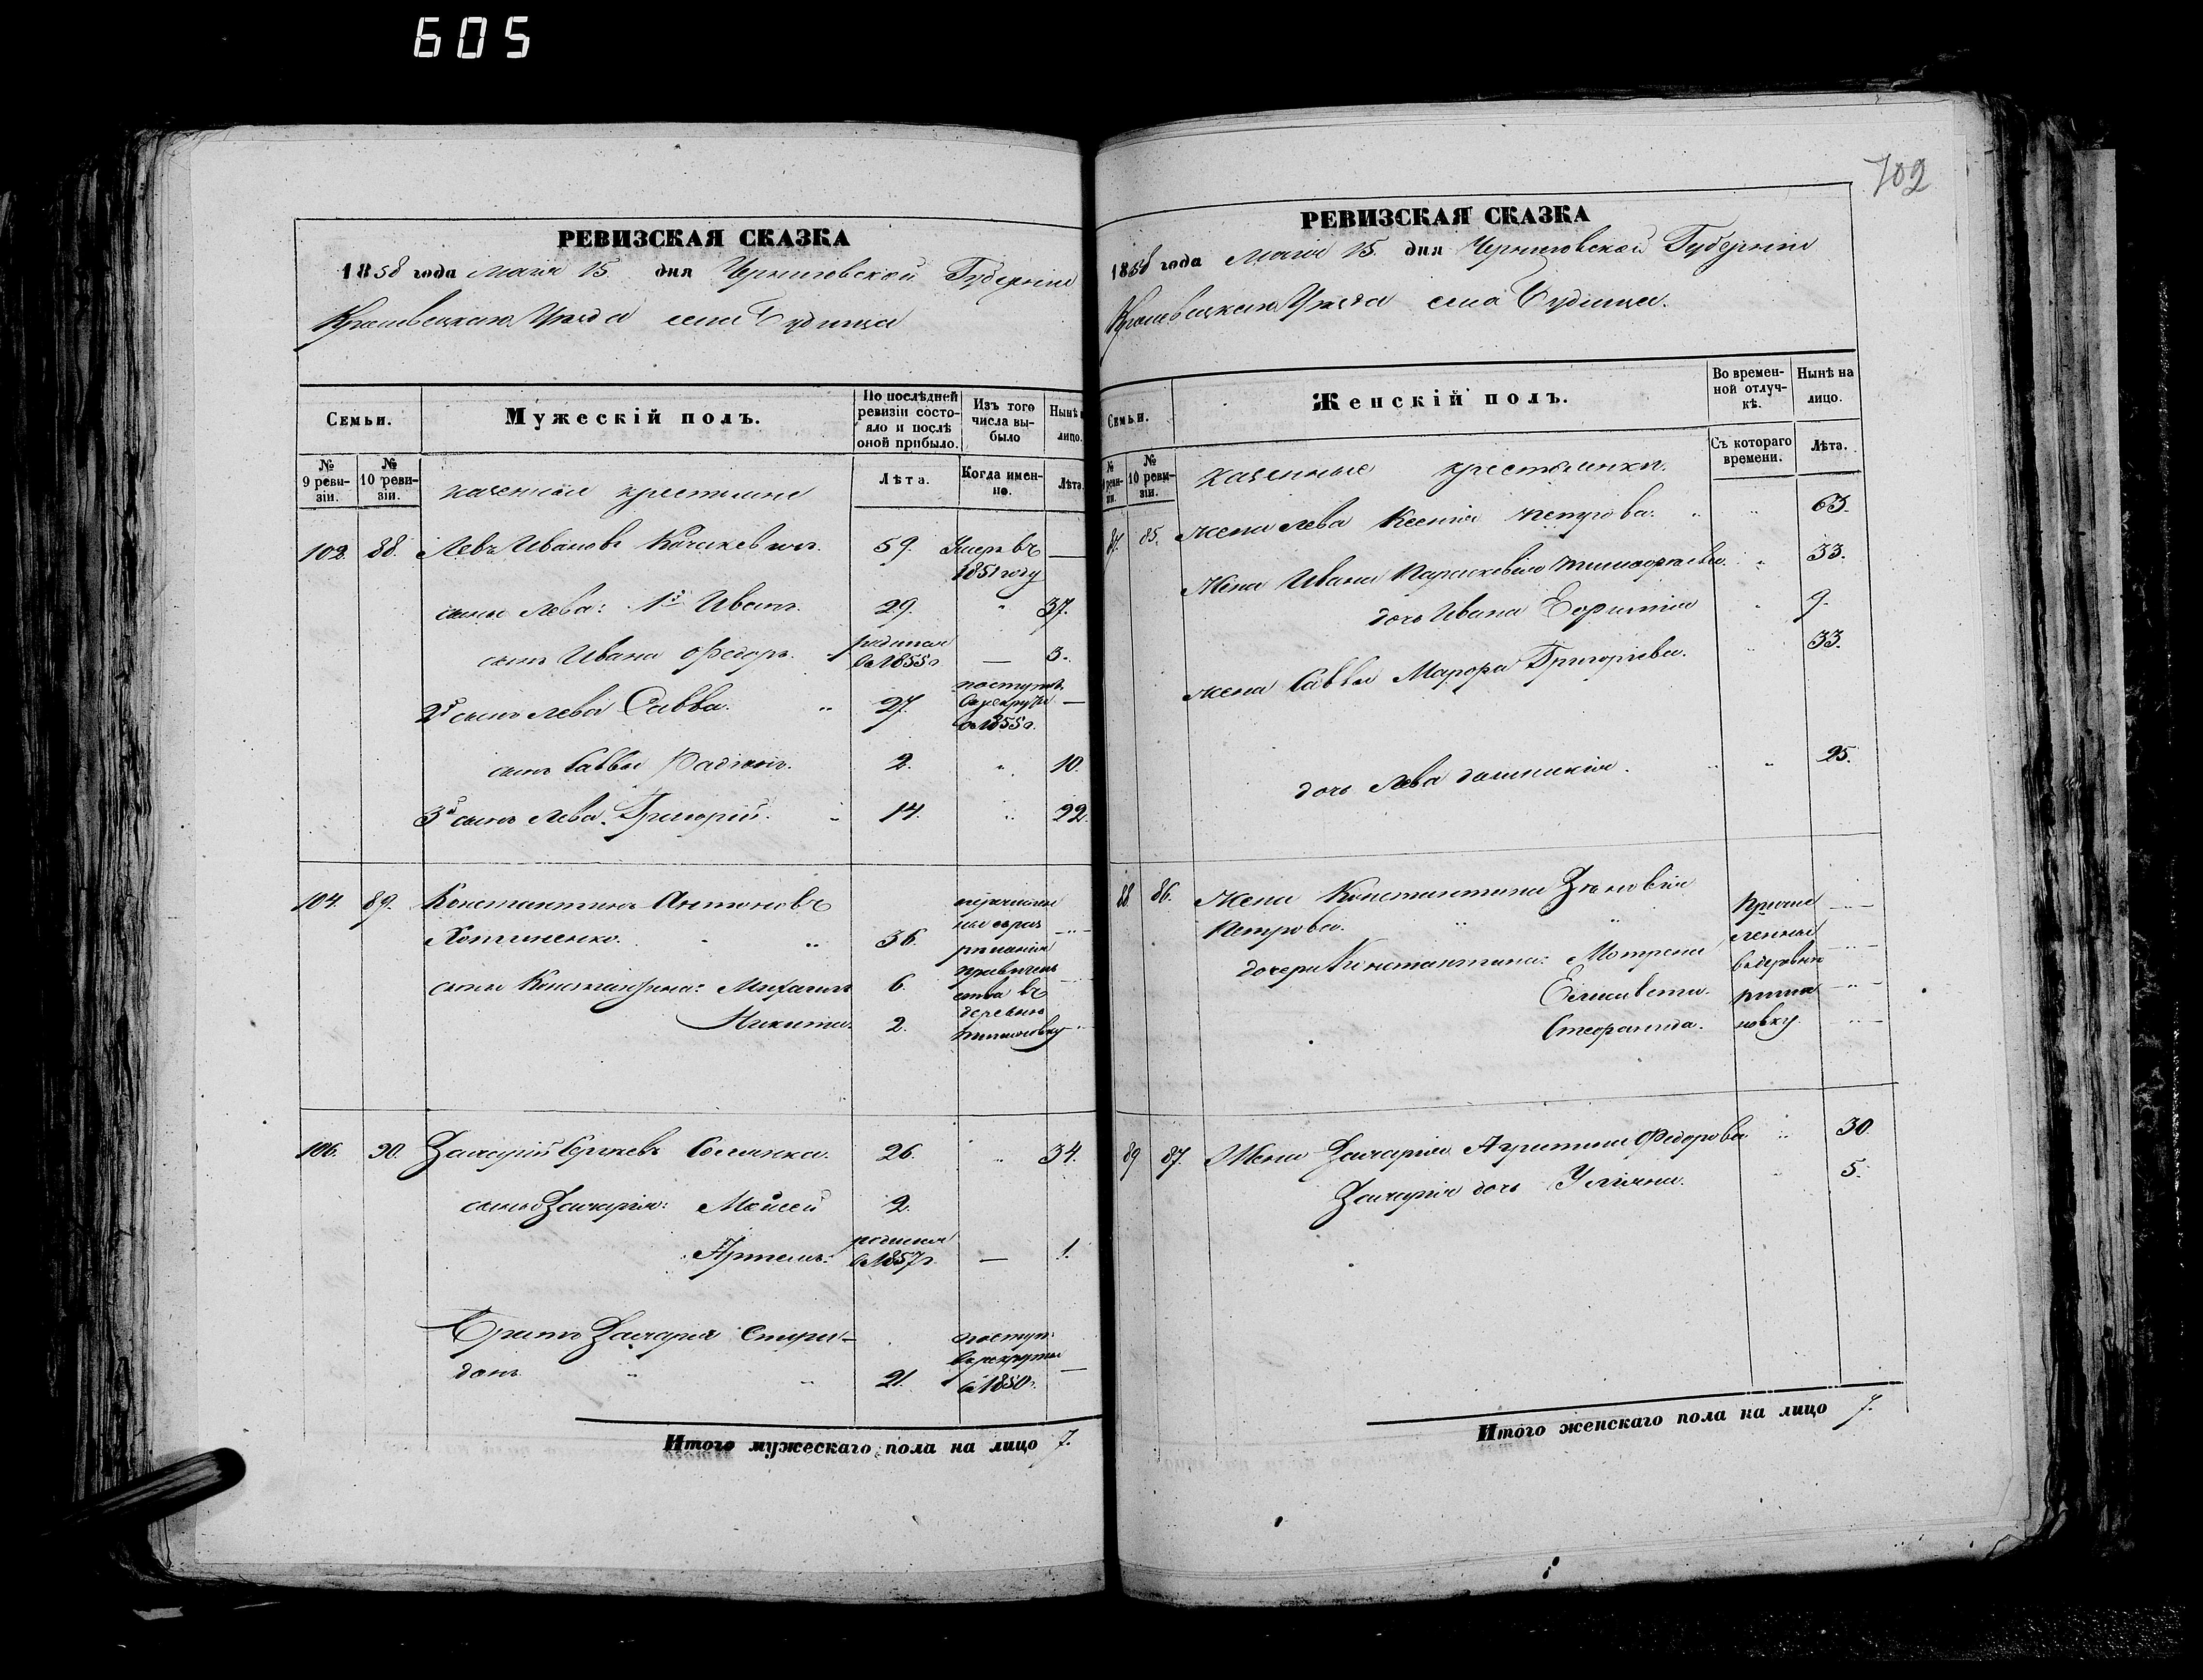 605
702
РЕВИЗСКАЯ СКАЗКА
1858 года Маія 15 дня Черниговской Губерніи
Кролевецкаго Уѣзда села Будища
Семьи.
Мужескій полъ.
По послѣдней ревизіи состояло и послѣ оной прибыло.
Изъ того числа выбыло
Нынѣ
лицо.
№ 9 ревизіи.
№ 10 ревизіи.
казенные крестьяне
Лѣта.
Когда именно.
Лѣта
102. 88. Левъ Ивановъ 59. Умеръ въ 1851 году —
сыны Лева: 1й Иванъ. 29. " 37.
сынъ Ивана Федоръ. родился в 1855 г — 3.
2й сынъ Лева Савва. " 27. поступилъ в рекруты в 1855 г. —
сынъ Саввы Радіонъ. 2. " 10.
3й сынъ Лева Григорій. " 14. " 22.
104. 89. Константинъ Антоновъ
Хотиненко. " 36.
сыны Константина: Михаилъ 6.
Никита. 2.
деревню
106. 90. Захарій Сергѣевъ 26. " 34.
сыны Захарія: Моисей 2.
Артемъ. родился в 1857 г. — 1.
Братъ Захарія Спири-
донъ " " 21. поступ. в рекруты в 1850 г. —
Итого мужескаго пола на лицо 7.
РЕВИЗСКАЯ СКАЗКА
1858 года Маія 15. дня Черниговской Губерніи
Кролевецкаго Уѣзда села Будища.
Семьи.
Женскій полъ.
Во временной отлучкѣ.
Нынѣ на лицо.
№ 10 ревизіи.
казенные крестьянки.
Съ котораго времени.
Лѣта.
87. 85. Жена Лева Ксенія Петрова. " " 63.
Жена Ивана Параскевія Тимофѣева. " 33.
дочь Ивана Евфимія " 9.
жена Саввы Марфа Григорьева. " 33.
дочь Лева Домникія. " " 25.
88 86. Жена Константина Зѣновія
Петрова. " "
дочери Константина: Мотрона
Елисавета.
Стефанида.
89 87. Жена Захарія Агрипина Федорова " 30.
Захарія дочь Уліяна. " 5.
Итого женскаго пола на лицо 7.